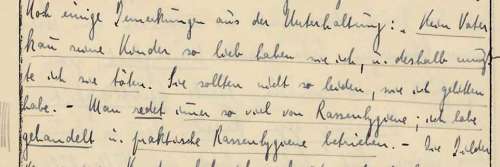 Noch einige Bemerkungen aus der Unterhaltung: „Kein Vater
kann seine Kinder so lieb haben wie ich, u. deshalb muß-
te ich sie töten. Sie sollten nicht so leiden, wie ich gelitten
habe. - Man redet immer so viel von Rassenhygiene; ich habe
gehandelt u. praktische Rassenhygiene betrieben. - Die Bilder